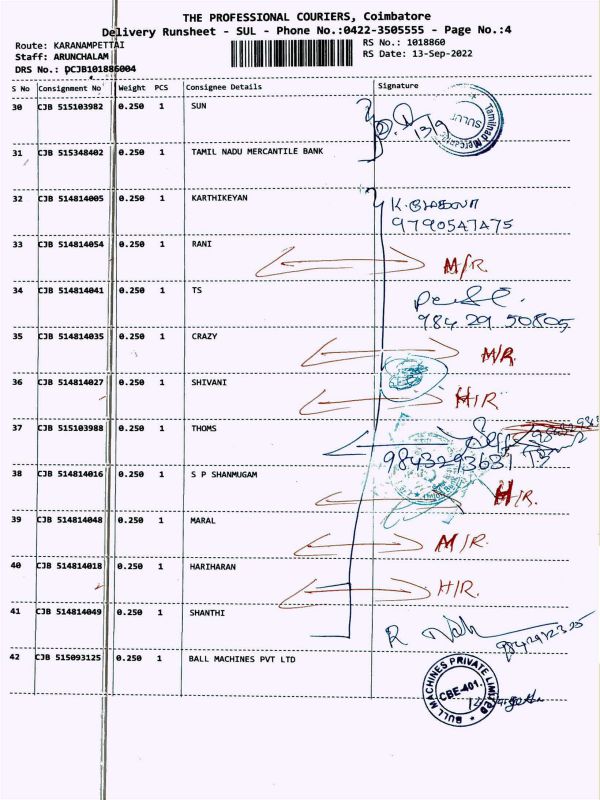 THE PROFESSIONAL COURIERS, Coimbatore
Delivery Runsheet - SUL - Phone No.:0422-3505555 - Page No.:4
Route: KARANAMPETTAI
RS No.: 1018860
Staff: ARUNCHALAM
RS Date: 13-Sep-2022
DRS No.: DCJB101886004
S No Consignment No Weight PCS Consignee Details Signature
30 CJB 515103982 0.250 1 SUN
Tamilnad Mercantile
SULUR
13/9
31 CJB 515348402 0.250 1 TAMIL NADU MERCANTILE BANK
32 CJB 514814005 0.250 1 KARTHIKEYAN
9790547475
33 CJB 514814054 0.250 1 RANI M/R.
34 CJB 514814041 0.250 1 TS
984 29 50805
35 CJB 514814035 0.250 1 CRAZY M/R.
36 CJB 514814027 0.250 1 SHIVANI H/R.
37 CJB 515103988 0.250 1 THOMS
9843293631
38 CJB 514814016 0.250 1 S P SHANMUGAM H/R.
39 CJB 514814048 0.250 1 MARAL M/R.
40 CJB 514814018 0.250 1 HARIHARAN H/R.
41 CJB 514814049 0.250 1 SHANTHI
42 CJB 515093125 0.250 1 BALL MACHINES PVT LTD
BULL MACHINES PRIVATE LIMITED
CBE-401.